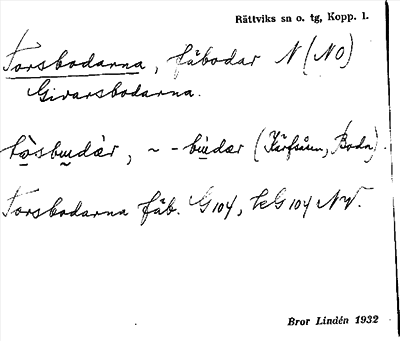 Rättviks sn o. tg, Kopp. l.
Torsbodarna, fäbodar N (NO)
Givarsbodarna.
tɷ̀sbudàr, ~ - budar (Kärfsåsen, Boda).
Torsbodarna fäb. G104, kG104 NV.
Bror Lindén 1932